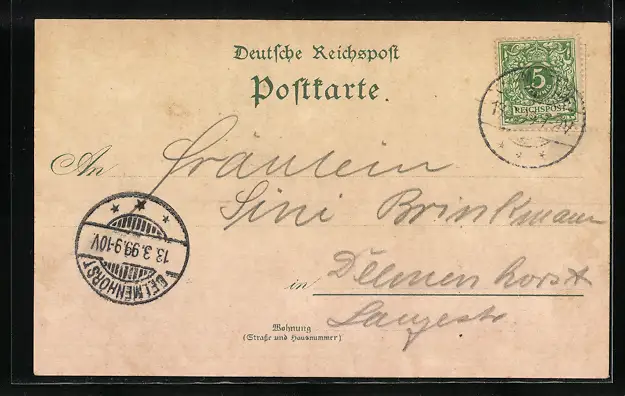 Deutsche Reichspost
Postkarte
5
REICHSPOST
An Fräulein
Sini Brinkmann
13.3.99.9-10V.
DELMENHORST
in Delmenhorst
Langestr
Wohnung
(Straße und Hausnummer)